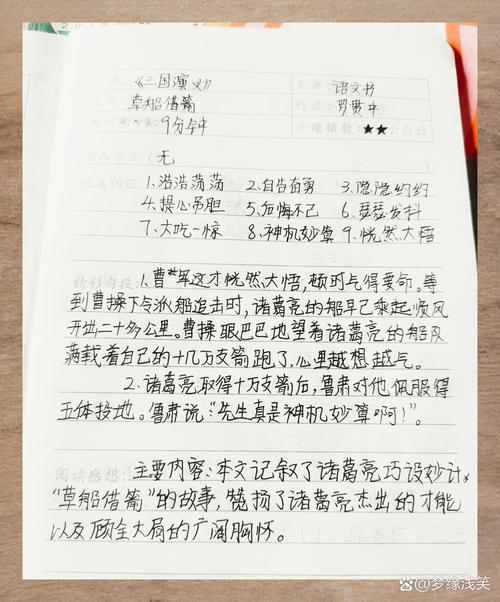 书名:《三国演义》 来源: 语文书
草船借箭 作者: 罗贯中
阅读时间: 9分钟 兴趣指数: ★★☆☆☆
名人名言 (无 )
优美词汇: 1.浩浩荡荡 2.自告奋勇 3.隐隐约约
4.提心吊胆 5.后悔不已 6.瑟瑟发抖
7.大吃一惊 8.神机妙算 9.恍然大悟
精彩句段: 1.曹军这才恍然大悟,顿时气得要命。等
到曹操下令派船追击时,诸葛亮的船早已乘起顺风
开出二十多公里。曹操眼巴巴地望着诸葛亮的船只
满载着自己的十几万支箭跑了,心里越想越气。
2.诸葛亮取得十万支箭后,鲁肃对他佩服得
五体投地。鲁肃说:“先生真是神机妙算啊!”。
阅读感想: 主要内容:本文记叙了诸葛亮巧设妙计,
“草船借箭”的故事,赞扬了诸葛亮杰出的才能
以及顾全大局的广阔胸怀。
百家号/梦缘浅笑